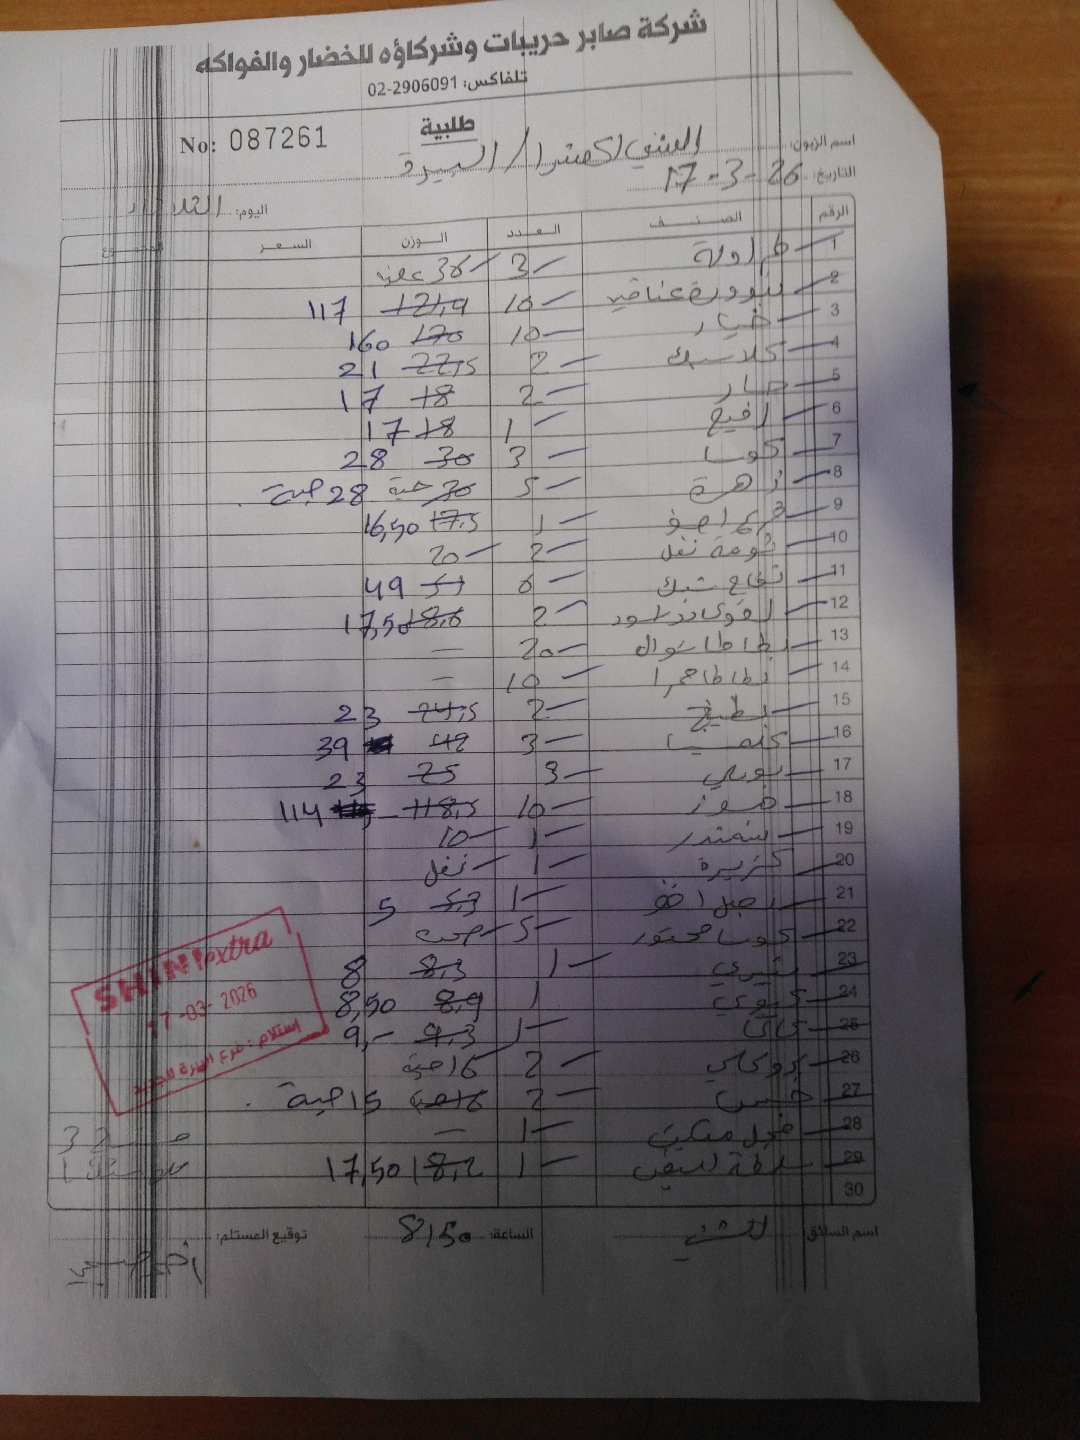 شركة صابر حريبات وشركاؤه للخضار والفواكه
تلفاكس: 02-2906091
طلبية
No: 087261
اسم الزبون: الشني اكسترا / البيرة
التاريخ: 17-3-26
اليوم: الثلاثاء
الرقم الصنف العدد الوزن السعر المجموع
1 فراولة 3 36 علبة
2 بندورة عناقيد 10 121,9 117
3 خيار 10 170 160
4 كلاسيك 2 22,5 21
5 حار 2 18 17
6 1 18 17
7 كوسا 3 30 28
8 زهرة 5 30 حبة 28 حبة
9 1 17,5 16,50
10 ثومة نفل 2 20
11 تفاح 6 51 49
12 2 18,6 17,50
13 بطاطا 20 —
14 بطاطا حمرا 10 —
15 بطيخ 2 24,5 23
16 كلمنتينا 3 42 39
17 بوملي 3 25 23
18 موز 10 118,5 114
19 شمندر 1 10
20 كزبرة 1 نفل
21 1 5,3 5
22 كوسا محفور 5 صحن
23 شيري 1 8,3 8
24 كيوي 1 8,9 8,50
25 كاكا 1 9,3 9,-
26 بروكلي 2 16 حبة
27 خس 2 16 حبة 15 حبة
28 فجل 1 —
29 1 18,2 17,50
30
اسم السائق:
الساعة: 8,50
توقيع المستلم:
SHINI extra
17-03-2026
استلام: فرع البيرة الجديد